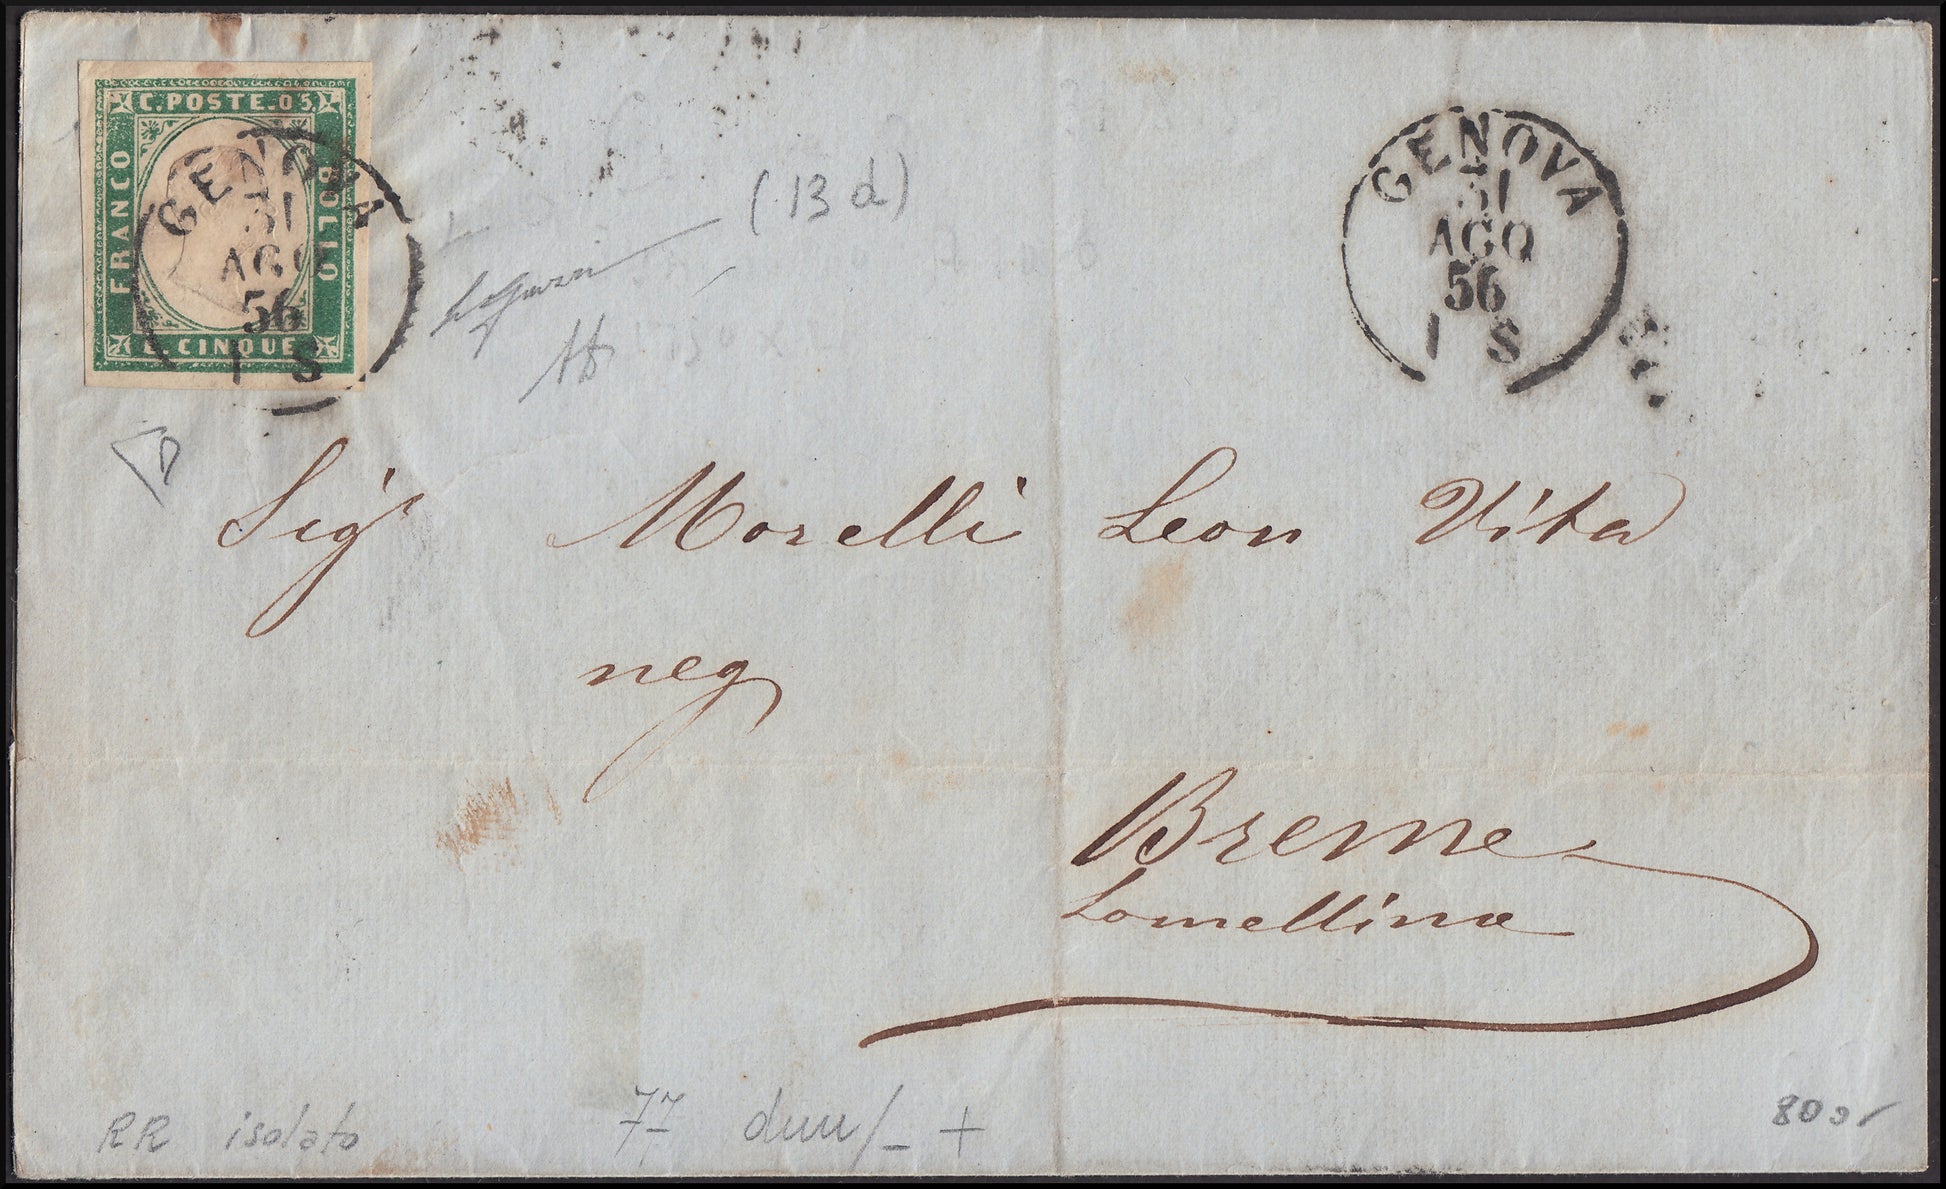 C. POSTE. 05.
FRANCO
BOLLO
C. CINQUE
GENOVA
31
AGO
56
1 S
GENOVA
31
AGO
56
1 S
(13 d)
Sigr Morelli Leon Vita
neg
Breme
Lomellina
RR isolato
77